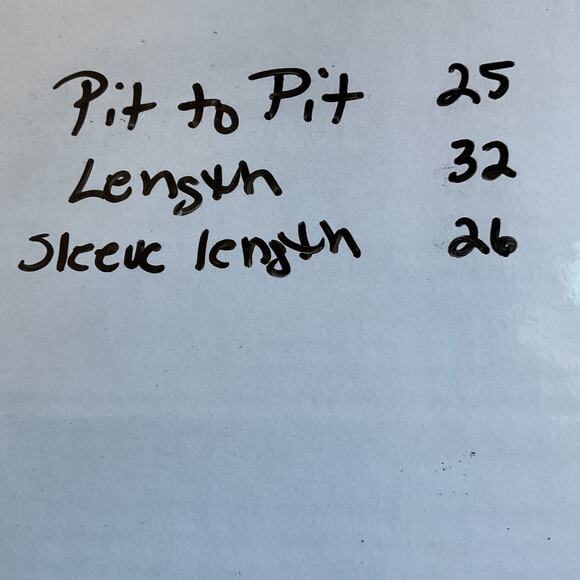 Pit to Pit 25
Length 32
Sleeve length 26